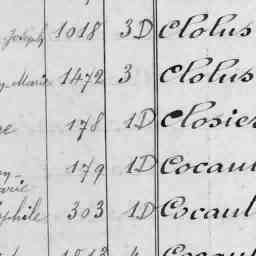 Joseph 1018 3D Clolus
y-Marie 1472 3 Clolus
re 178 1D Closier
y- 179 1D Cocaul
arie
phile 303 1D Cocaul